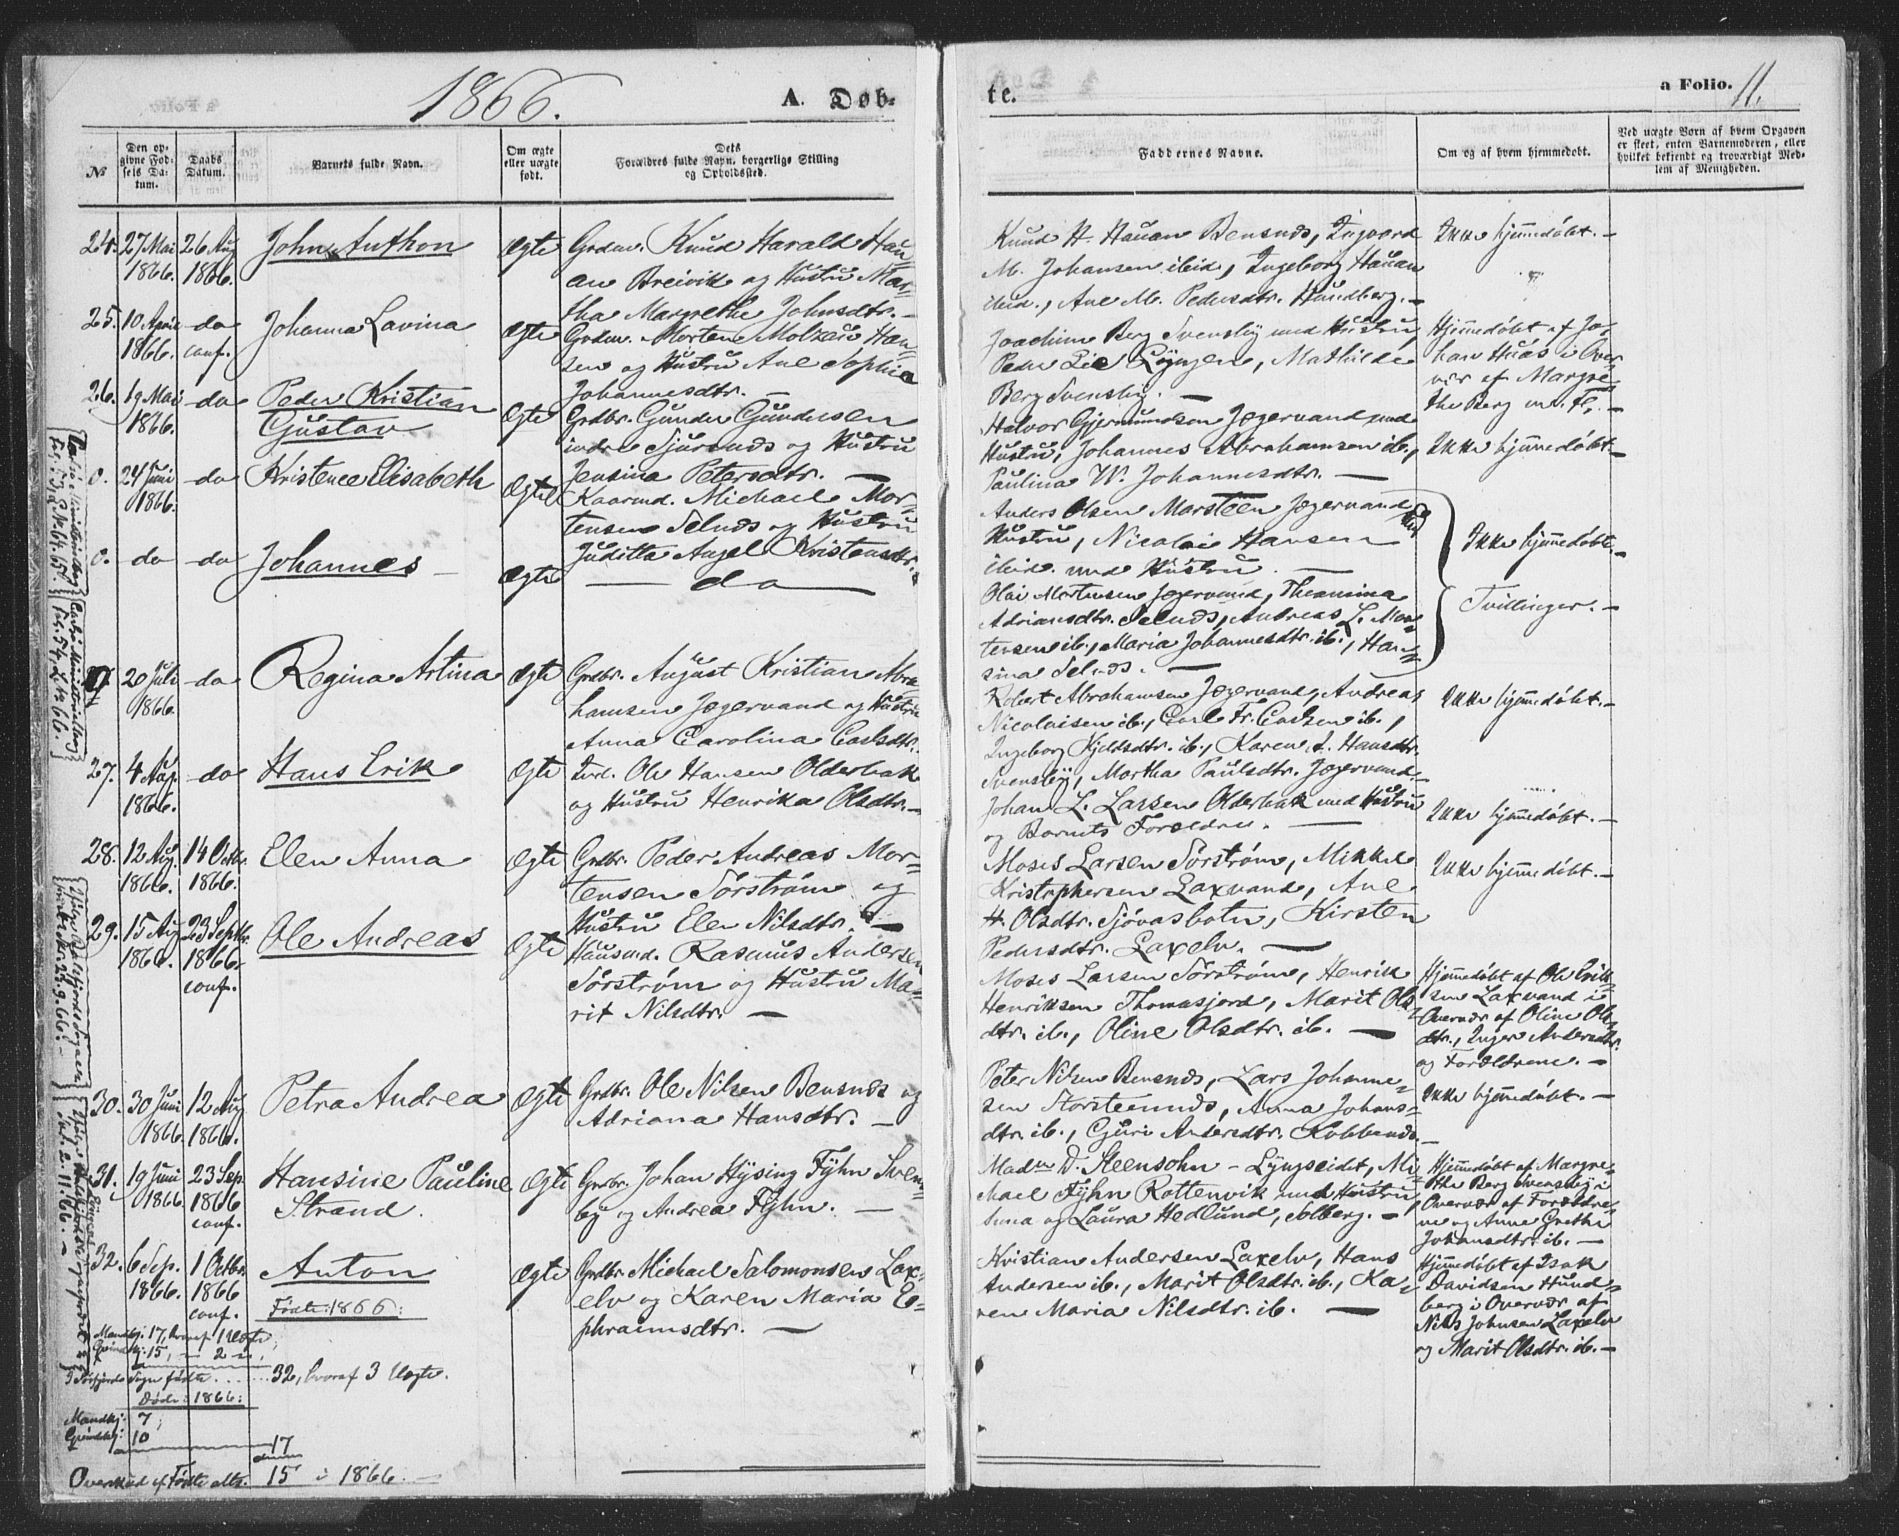 1866.
A. Døb-
te.
a Folio. 11.
№
Den op-
givne Fød-
sels Da-
tum.
Daabs
Datum.
Barnets fulde Navn.
Om ægte
eller uægte
født.
Dets
Forældres fulde Navn, borgerlige Stilling
og Opholdssted.
Faddernes Navne.
Om og af hvem hjemmedøbt.
Ved uægte Børn af hvem Opgaven
er skeet, enten Barnemoderen, eller
hvilket bekjendt og troværdigt Med-
lem af Menigheden.
24. 27 Mai 1866. 26 Aug 1866. John Anthon Ægte
Grdm. Knud Harald Hau-
an Breivik og Hustru Mar-
tha Margrethe Johnsdtr. -
Knud H. Hauan Bensnds, Ingvard
M. Johansen ibid, Ingeborg Hauan
ibid., Ane M. Pedersdtr. Hundberg. -
Ikke hjemmedøbt. -
25. 10 April 1866. do conf. Johanna Lavina Ægte
Grdm. Morten Molzau Han-
sen og Hustru Ane Sophia
Johannesdtr. -
Joachim Berg Svensby med Hustru,
Peder Lie Lyngen, Mathilde
Berg Svensby. -
Hjemmedøbt af Jo-
han Huas i Over-
vær af Margre-
the Berg m. fl. -
26. 19 Mai 1866. do Peder Kristian
Gustav Ægte
Grdbr. Gunder Gundersen
indre Sjursnds og Hustru
Jensina Petersdtr. -
Halvor Gjermundsen Jægervand med
Hustru, Johannes Abrahamsen ib.,
Paulina W. Johannesdtr. -
Ikke hjemmedøbt -
0. 24 Juni 1866. do Kristence Elisabeth Ægte
Kaarmd. Michael Mor-
tensen Selnds og Hustru
Juditta Angel Kristensdtr. -
Anders Olsen Marsteen Jægervand
Hustru, Nicolai Hansen
ibid. med Hustru. -
Ikke hjemmedøbt. -
0. do do Johannes - Ægte
— do —
Olai Mortensen Jægervand, Theansina
Adriansdtr. Selnds, Andreas L. Mor-
tensen ib., Maria Johannesdtr. ib., Han-
sina Selnds. -
Tvillinger. -
20 Juli 1866. do Regina Artina Ægte
Grdbr. August Kristian Abra
hamsen Jægervand og Hustru
Anna Carolina Carlsdtr.
Robert Abrahamsen Jægervand, Andreas
Nicolaisen ib., Carl Fr. Carlsen ib.,
Ingeborg Kjeldsdtr. ib., Karen A. Hansdtr.
Svensby, Martha Paulsdtr. Jægervand. -
Ikke hjemmedøbt. -
27. 4 Aug. 1866. do Hans Erik Ægte
Inrl. Ole Hansen Olderbak
og Hustru Henrika Olsdtr. -
Johan L. Larsen Olderbak med Hustru
og Barnets Forældre. -
Ikke hjemmedøbt. -
28. 12 Aug. 1866. 14 Octbr. 1866. Elen Anna Ægte
Grdbr. Peder Andreas Mor-
tensen Sørstrøm og
Hustru Elen Nilsdtr. -
Moses Larsen Sørstrøm, Mikkel
Kristophersen Laxvand, Ane
H. Olsdtr. Sjøvasbotn, Kirsten
Pedersdtr. Laxelv. -
Ikke hjemmedøbt. -
29. 15 Aug 1866. 23 Septbr. 1866. conf. Ole Andreas Ægte
Husmd. Rasmus Andersen
Sørstrøm og Hustru Ma-
rit Nilsdtr. -
Moses Larsen Sørstrøm, Henrik
Henriksen Thomasjord, Marit Ols-
dtr. ib., Oline Olsdtr. ib. -
Hjemmedøbt af Ole Erik-
sen Laxvand i
Overvær af Oline Ols-
dtr., Inger Andersdtr.
og Forældrene. -
30. 30 Juni 1866 12 Aug 1866. Petra Andrea Ægte
Grdbr. Ole Nilsen Bensnds og
Adriana Hansdtr. -
Peter Nilsen Bensnds, Lars Johanne-
sen Storsteennds, Anna Johans-
dtr. ib., Guri Andersdtr. Kobbends. -
Ikke hjemmedøbt. -
31. 19 Juni 1866 23 Sep. 1866 conf. Hansine Pauline
Strand. Ægte
Grdbr. Johan Hysing Fyhn Svens-
by og Andrea Fyhn. -
Madm D. Steensohn - Lyngseidet, Mi-
kael Fyhn Rottenvik med Hustru,
Anna og Laura Hedlund, Solberg. -
Hjemmedøbt af Margre-
the Berg Svensby i
Overvær af Forældre-
ne og Anne Grethe
Johansdtr. ib. -
32. 6 Sep. 1866. 1 Octbr. 1866 conf. Anton Ægte
Grdbr. Michael Salomonsen Lax-
elv og Karen Maria E-
phraimsdtr. -
Kristian Andersen Laxelv, Hans
Andersen ib., Marit Olsdtr. ib., Ka-
ren Maria Nilsdtr. ib. -
Hjemmedøbt af Isak
Davidsen Hund-
berg i Overvær af
Nils Johnsen Laxelv
og Marit Olsdtr. ib. -
Fødte: 1866:
Mandkj: 17, hvoraf 1 Uægte,
Qvindkj: 15, - 2 -
fødte . . . 32, hvoraf 3 Uægte.
Døde: 1866:
Mandkj: 7,
Qvindkj: 10
17
Overskud af Fødte altsaa 15 i 1866. -